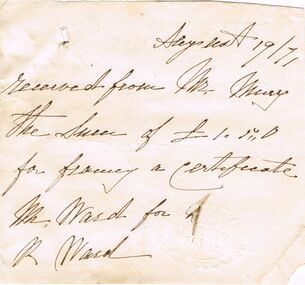 August 19/71
received from Mr.
the Sum of £ 1. 5. 0
for framing a certificate
Mr. Ward for
R Ward